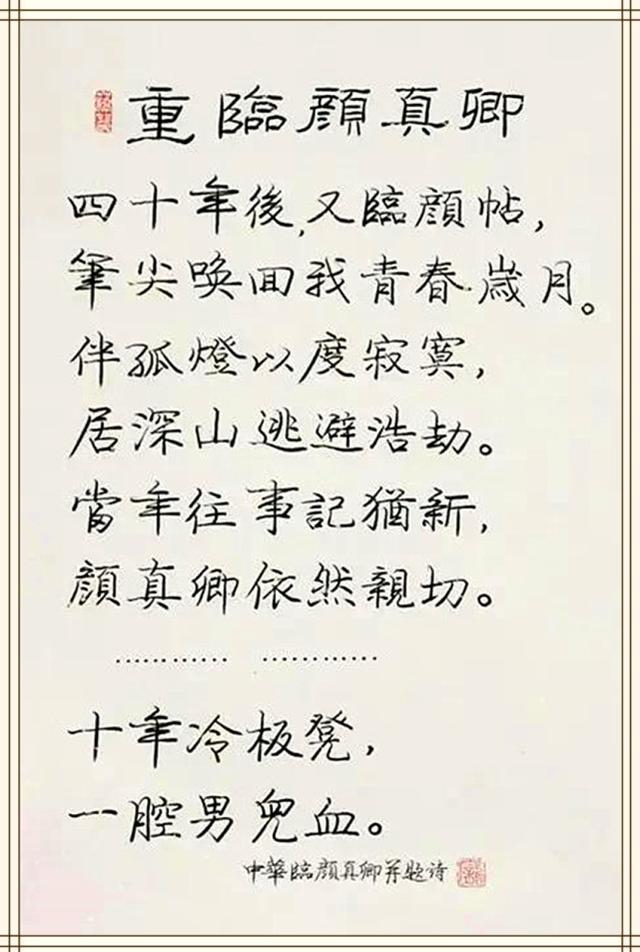 重臨顔真卿
四十年後,又臨顔帖,
筆尖唤回我青春歲月。
伴孤燈以度寂寞,
居深山逃避浩劫。
當年往事記猶新,
顔真卿依然親切。
………… …………
十年冷板凳,
一腔男兒血。
中華臨顔真卿并題诗